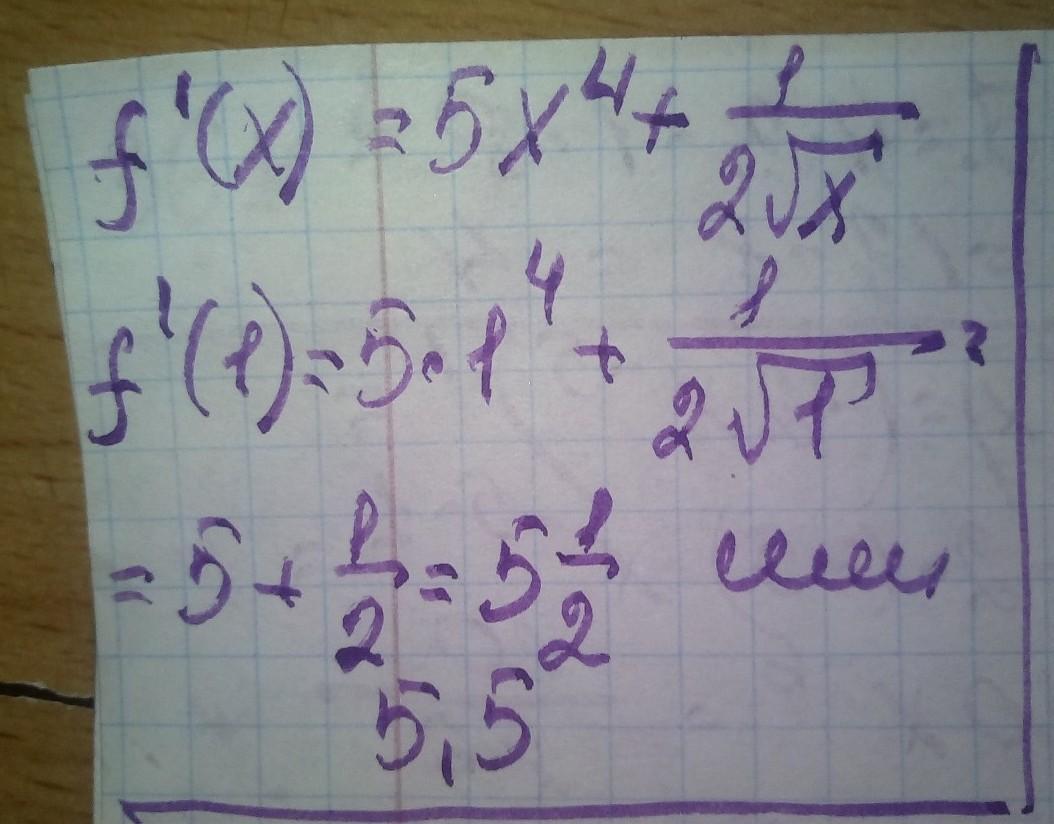 f'(x) = 5x⁴ + 1/(2√x)
f'(1) = 5 · 1⁴ + 1/(2√1) =
= 5 + 1/2 = 5 1/2 или
5,5